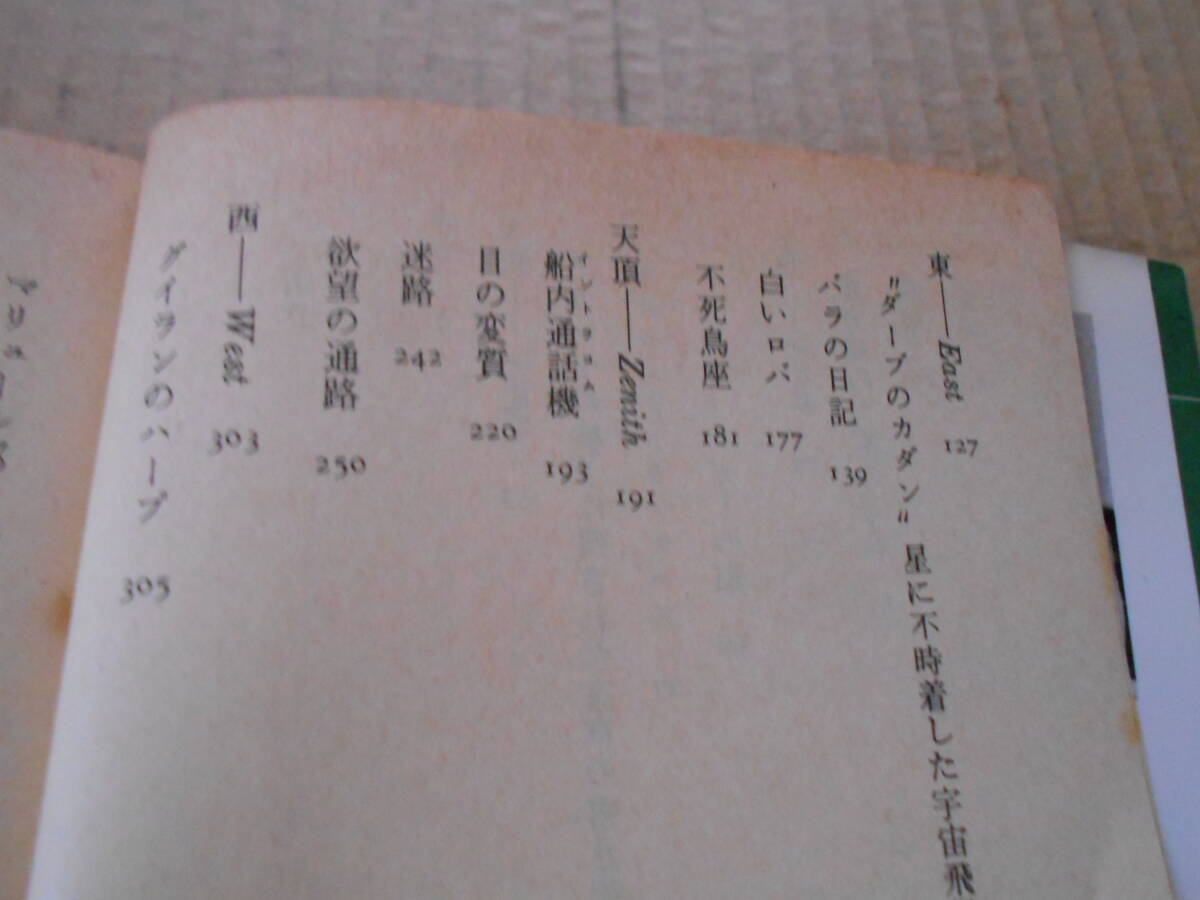 東——East 127
〝ダーブのカダン〟星に不時着した宇宙飛
バラの日記 139
白いロバ 177
不死鳥座 181
天頂——Zenith 191
船内通話機 193
イントラコム
目の変質 220
迷路 242
欲望の通路 250
西——West 303
グィランのハープ 305